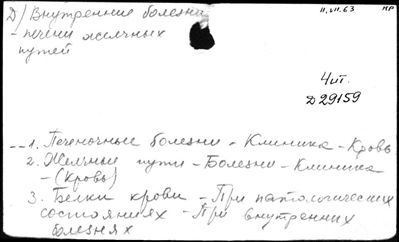 Д) Внутренние болезни
11.VII.63 НР
- печени желчных
путей
Чит.
Д 29159
1. Печеночные болезни - Клиника - Кровь
2. Желчные пути - Болезни - Клиника
- (Кровь)
3. Белки крови - При патологических
состояниях - При внутренних
болезнях